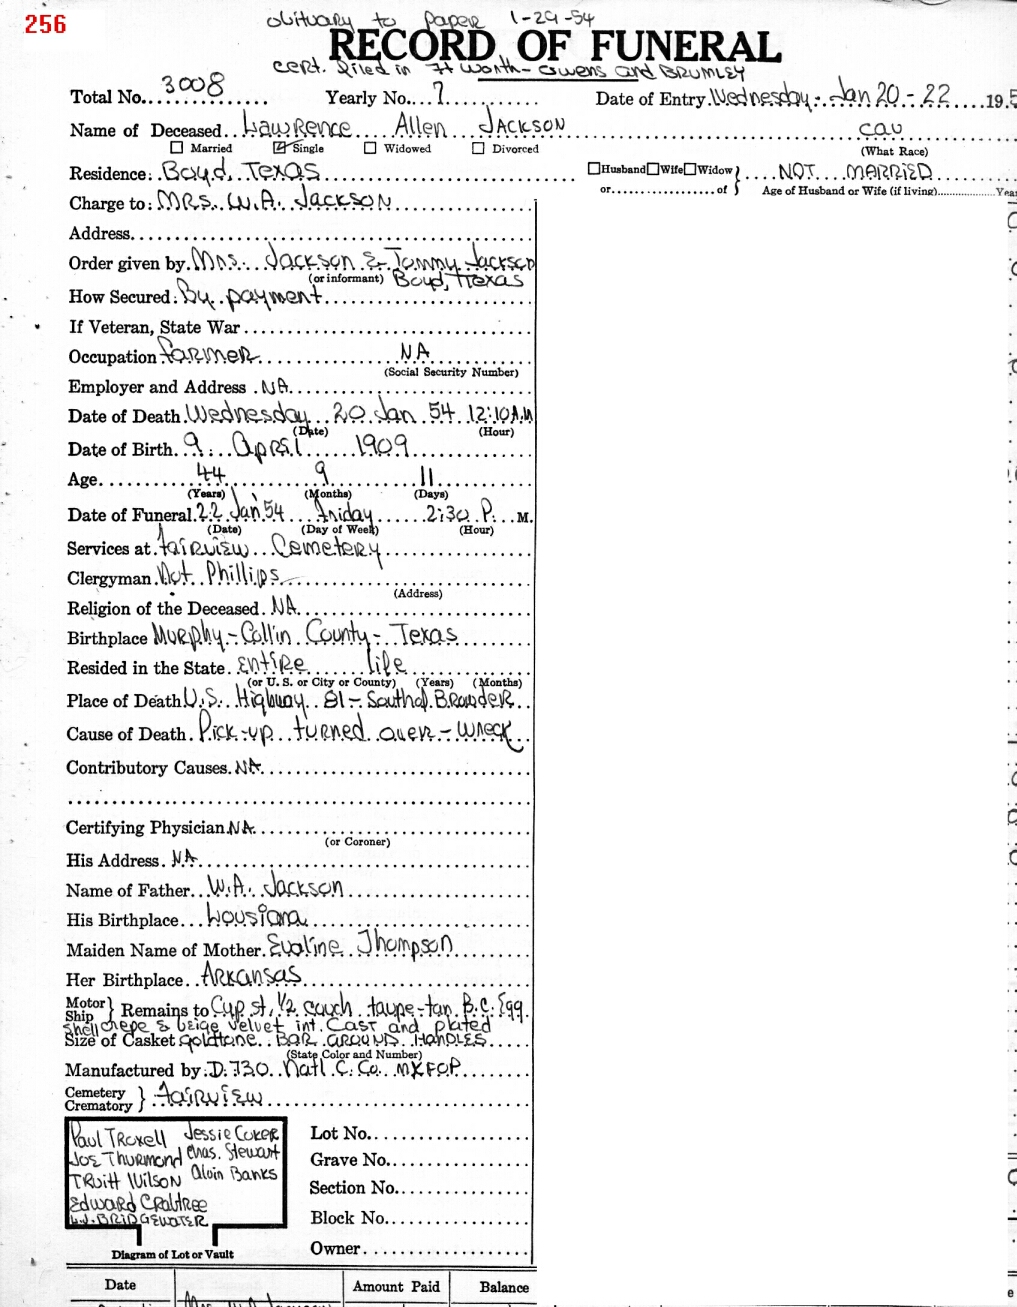 256
obituary to Paper 1-29-54
RECORD OF FUNERAL
cert. filed in Ft Worth - Owens and BRUMLEY
Total No. 3008 Yearly No. 7 Date of Entry Wednesday - Jan 20 - 22 195
Name of Deceased Lawrence Allen JACKSON cau
Married Single Widowed Divorced (What Race)
Residence: Boyd, Texas Husband Wife Widow } NOT MARRIED
or of } Age of Husband or Wife (if living) Year
Charge to: MRS. W.A. JACKSON
Address
Order given by Mrs. Jackson & Tommy Jackson
(or informant) Boyd, Texas
How Secured: By payment
If Veteran, State War
Occupation farmer NA
(Social Security Number)
Employer and Address NA
Date of Death Wednesday 20 Jan 54 12:10 A.M
(Date) (Hour)
Date of Birth 9 April 1909
Age 44 9 11
(Years) (Months) (Days)
Date of Funeral 22 Jan 54 Friday 2:30 P. M.
(Date) (Day of Week) (Hour)
Services at Fairview Cemetery
Clergyman Nat Phillips
(Address)
Religion of the Deceased NA
Birthplace Murphy - Collin County - Texas
Resided in the State entire life
(or U. S. or City or County) (Years) (Months)
Place of Death U.S. Highway 81 - South of
Cause of Death Pick-up turned over - wreck
Contributory Causes NA
Certifying Physician NA
(or Coroner)
His Address NA
Name of Father W.A. Jackson
His Birthplace Lousiana
Maiden Name of Mother Evaline Thompson
Her Birthplace Arkansas
Motor Ship } Remains to Cyp st, 1/2 couch taupe-tan B.C. Egg
shell crepe & beige velvet int. Cast and plated
Size of Casket goldtone BAR AROUND HANDLES
(State Color and Number)
Manufactured by D.730 Natl C. Co.
Cemetery Crematory } Fairview
Paul Troxell Jessie Coker
Joe Thurmond Chas. Stewart
Truitt Wilson Alvin Banks
Edward Crabtree
L.J. BRIDGEWATER
Lot No.
Grave No.
Section No.
Block No.
Owner
Diagram of Lot or Vault
Date Amount Paid Balance